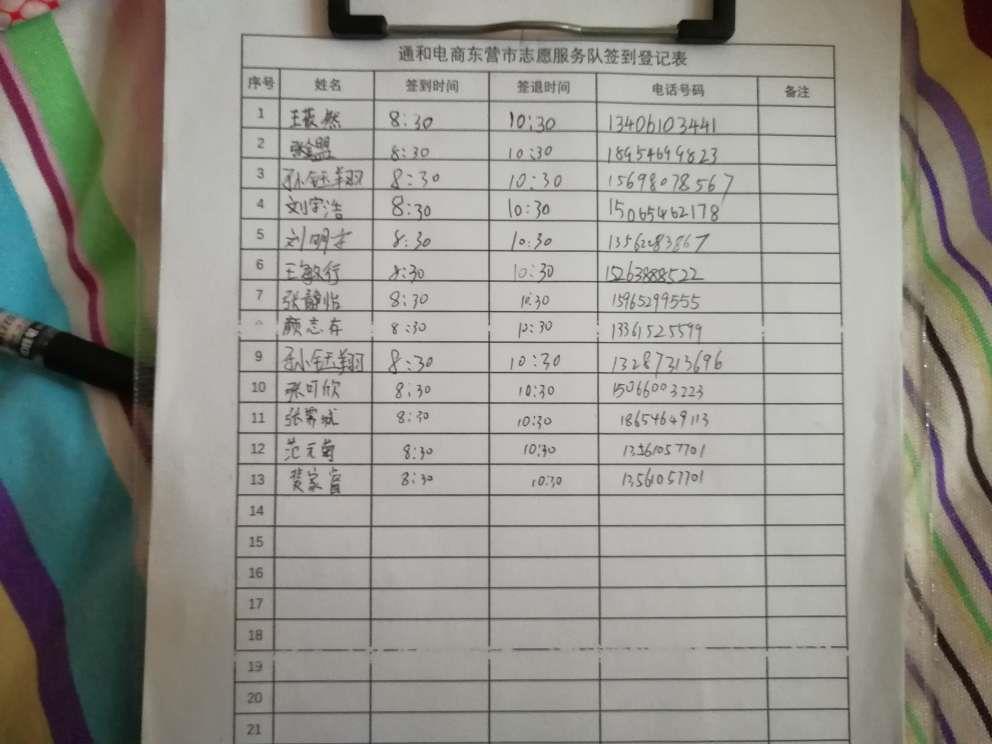 通和电商东营市志愿服务队签到登记表
序号 姓名 签到时间 签退时间 电话号码 备注
1 王筱然 8:30 10:30 13406103441
2 8:30 10:30 18954699823
3 孙钰翔 8:30 10:30 15698078567
4 刘宇浩 8:30 10:30 15065462178
5 刘明 8:30 10:30 13562283867
6 王敏行 8:30 10:30 15263888522
7 张静怡 8:30 10:30 15965299555
颜志存 8:30 10:30 13361525599
9 孙钰翔 8:30 10:30 13287313696
10 张可欣 8:30 10:30 15066003223
11 张 8:30 10:30 18654649113
12 范元菊 8:30 10:30 13561057701
13 家富 8:30 10:30 13561057701
14
15
16
17
18
19
20
21